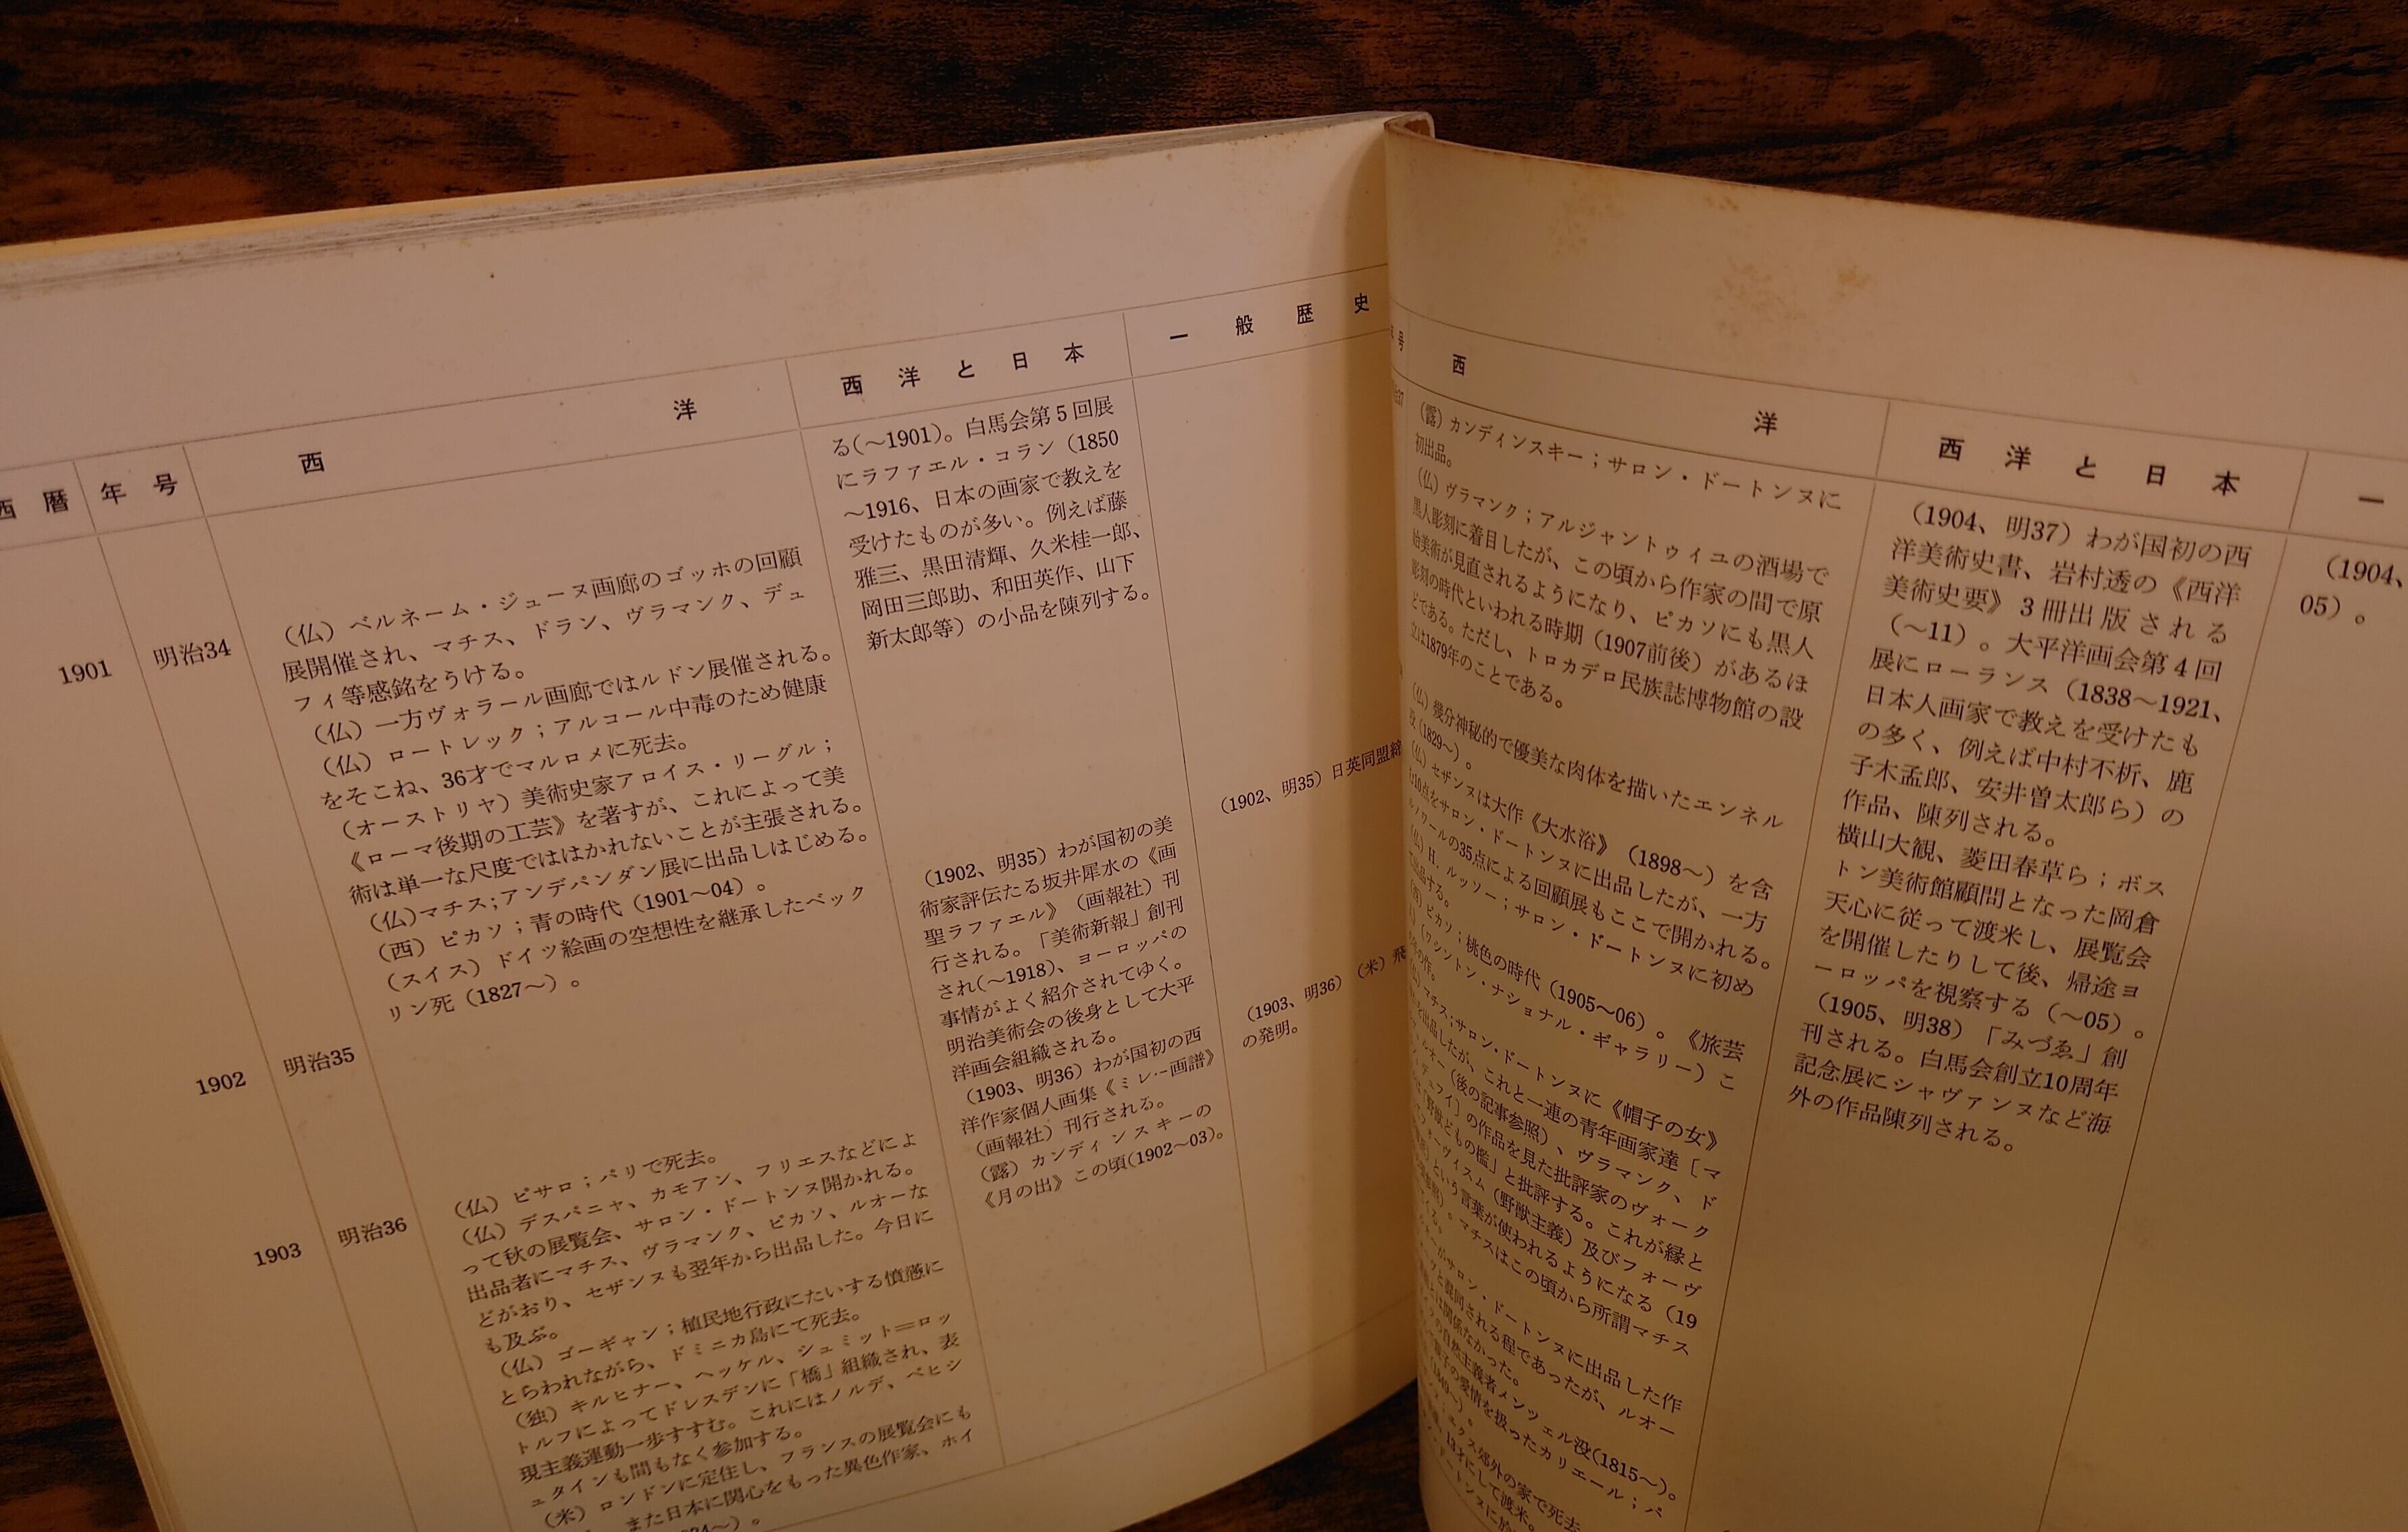 西暦 年号 西洋 西洋と日本 一般歴史
1901 明治34
(仏) ベルネーム・ジューヌ画廊のゴッホの回顧
展開催され、マチス、ドラン、ヴラマンク、デュ
フィ等感銘をうける。
(仏) 一方ヴォラール画廊ではルドン展催される。
(仏) ロートレック;アルコール中毒のため健康
をそこね、36才でマルロメに死去。
(オーストリヤ) 美術史家アロイス・リーグル;
《ローマ後期の工芸》を著すが、これによって美
術は単一な尺度でははかれないことが主張される。
(仏)マチス;アンデパンダン展に出品しはじめる。
(西) ピカソ;青の時代 (1901〜04) 。
(スイス) ドイツ絵画の空想性を継承したベック
リン死 (1827〜) 。
1902 明治35
1903 明治36
(仏) ピサロ;パリで死去。
(仏) デスパニャ、カモアン、フリエスなどによ
って秋の展覧会、サロン・ドートンヌ開かれる。
出品者にマチス、ヴラマンク、ピカソ、ルオーな
どがおり、セザンヌも翌年から出品した。今日に
も及ぶ。
(仏) ゴーギャン;植民地行政にたいする憤懣に
とらわれながら、ドミニカ島にて死去。
(独) キルヒナー、ヘッケル、シュミット=ロッ
トルフによってドレスデンに「橋」組織され、表
現主義運動一歩すすむ。これにはノルデ、ペヒシ
ュタインも間もなく参加する。
(米) ロンドンに定住し、フランスの展覧会にも
また日本に関心をもった異色作家、ホイ
る(〜1901)。白馬会第5回展
にラファエル・コラン (1850
〜1916、日本の画家で教えを
受けたものが多い。例えば藤
雅三、黒田清輝、久米桂一郎、
岡田三郎助、和田英作、山下
新太郎等) の小品を陳列する。
(1902、明35) わが国初の美
術家評伝たる坂井犀水の《画
聖ラファエル》 (画報社) 刊
行される。「美術新報」創刊
され(〜1918)、ヨーロッパの
事情がよく紹介されてゆく。
明治美術会の後身として太平
洋画会組織される。
(1903、明36) わが国初の西
洋作家個人画集《ミレー画譜》
(画報社) 刊行される。
(露) カンディンスキーの
《月の出》この頃(1902〜03)。
(1902、明35) 日英同盟締
(1903、明36) (米) 飛
の発明。
号 西洋 西洋と日本 一
(露) カンディンスキー;サロン・ドートンヌに
初出品。
(仏) ヴラマンク;アルジャントゥイユの酒場で
黒人彫刻に着目したが、この頃から作家の間で原
始美術が見直されるようになり、ピカソにも黒人
彫刻の時代といわれる時期 (1907前後) があるほ
どである。ただし、トロカデロ民族誌博物館の設
立は1879年のことである。
(仏) 幾分神秘的で優美な肉体を描いたエンネル
(1829〜) 。
(仏) セザンヌは大作《大水浴》 (1898〜) を含
10点をサロン・ドートンヌに出品したが、一方
ルノワールの35点による回顧展もここで開かれる。
(仏) H. ルッソー;サロン・ドートンヌに初め
て出品する。
(西) ピカソ;桃色の時代 (1905〜06) 。《旅芸
(ワシントン・ナショナル・ギャラリー) こ
の作。
マチス;サロン・ドートンヌに《帽子の女》
を出品したが、これと一連の青年画家達 [マ
(後の記事参照) 、ヴラマンク、ド
デュフィ] の作品を見た批評家のヴォーク
「野獣どもの檻」と批評する。これが縁と
フォーヴィスム (野獣主義) 及びフォーヴ
という言葉が使われるようになる (19
。マチスはこの頃から所謂マチス
サロン・ドートンヌに出品した作
と混同される程であったが、ルオー
は関係なかった。
の自然主義者メンツェル没(1815〜)。
子の愛情を扱ったカリエール;パ
(1849〜) 。
エクス郊外の家で死去
13才にして渡米。
(1904、明37) わが国初の西
洋美術史書、岩村透の《西洋
美術史要》3冊出版される
(〜11) 。大平洋画会第4回
展にローランス (1838〜1921、
日本人画家で教えを受けたも
の多く、例えば中村不折、鹿
子木孟郎、安井曽太郎ら) の
作品、陳列される。
横山大観、菱田春草ら;ボス
トン美術館顧問となった岡倉
天心に従って渡米し、展覧会
を開催したりして後、帰途ヨ
ーロッパを視察する (〜05) 。
(1905、明38) 「みづゑ」創
刊される。白馬会創立10周年
記念展にシャヴァンヌなど海
外の作品陳列される。
(1904、
05) 。